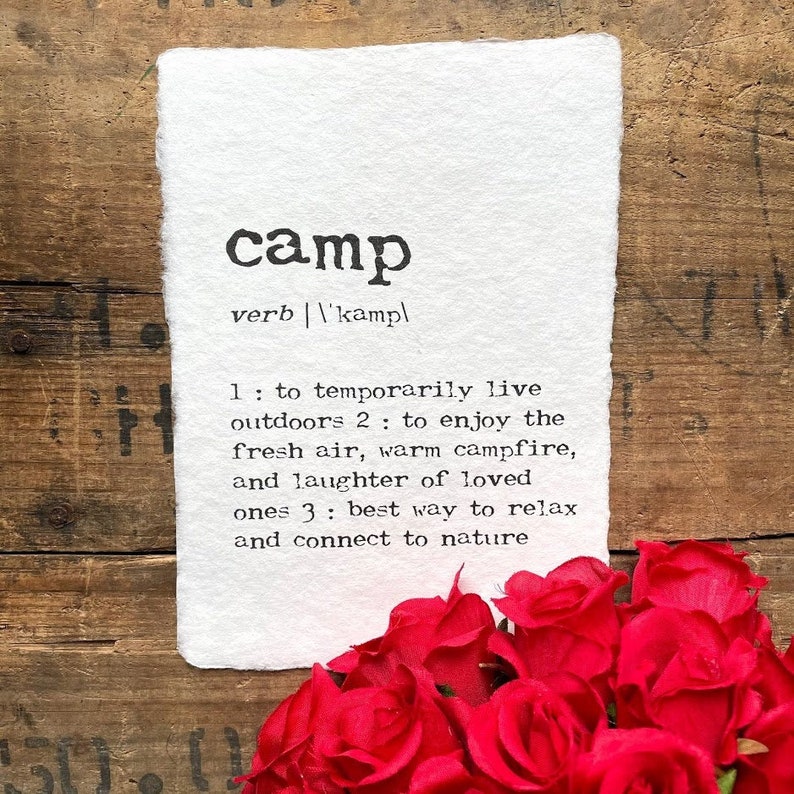 camp
verb | \ˈkamp\
1 : to temporarily live
outdoors 2 : to enjoy the
fresh air, warm campfire,
and laughter of loved
ones 3 : best way to relax
and connect to nature